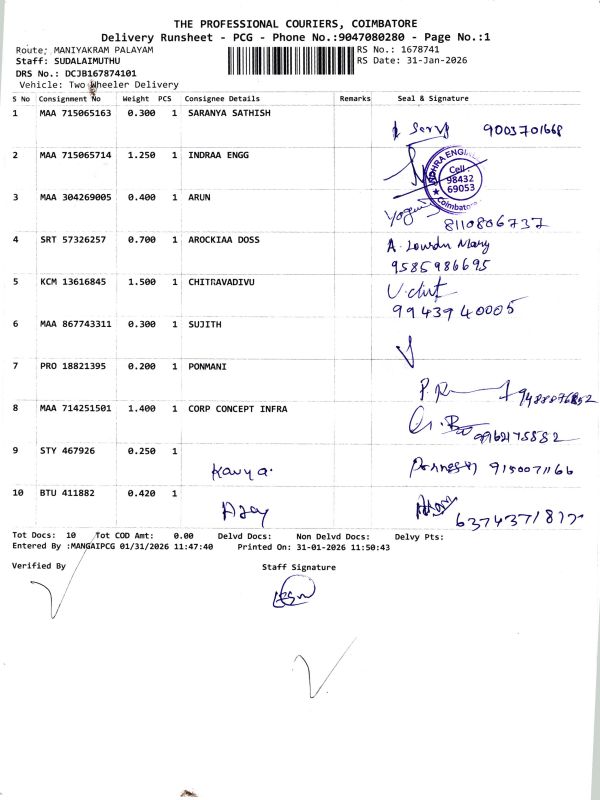 THE PROFESSIONAL COURIERS, COIMBATORE
Delivery Runsheet - PCG - Phone No.:9047080280 - Page No.:1
Route: MANIYAKRAM PALAYAM RS No.: 1678741
Staff: SUDALAIMUTHU RS Date: 31-Jan-2026
DRS No.: DCJB167874101
Vehicle: Two Wheeler Delivery
S No Consignment No Weight PCS Consignee Details Remarks Seal & Signature
1 MAA 715065163 0.300 1 SARANYA SATHISH
9003701668
2 MAA 715065714 1.250 1 INDRAA ENGG
Cell :
98432
69053
Coimbatore
3 MAA 304269005 0.400 1 ARUN
8110806737
4 SRT 57326257 0.700 1 AROCKIAA DOSS A. Lourdu Mary
9585986695
5 KCM 13616845 1.500 1 CHITRAVADIVU
9943940005
6 MAA 867743311 0.300 1 SUJITH
7 PRO 18821395 0.200 1 PONMANI
8 MAA 714251501 1.400 1 CORP CONCEPT INFRA
9 STY 467926 0.250 1
Kavya. 9150071166
10 BTU 411882 0.420 1
Ajay
Tot Docs: 10 Tot COD Amt: 0.00 Delvd Docs: Non Delvd Docs: Delvy Pts:
Entered By :MANGAIPCG 01/31/2026 11:47:40 Printed On: 31-01-2026 11:50:43
Verified By Staff Signature